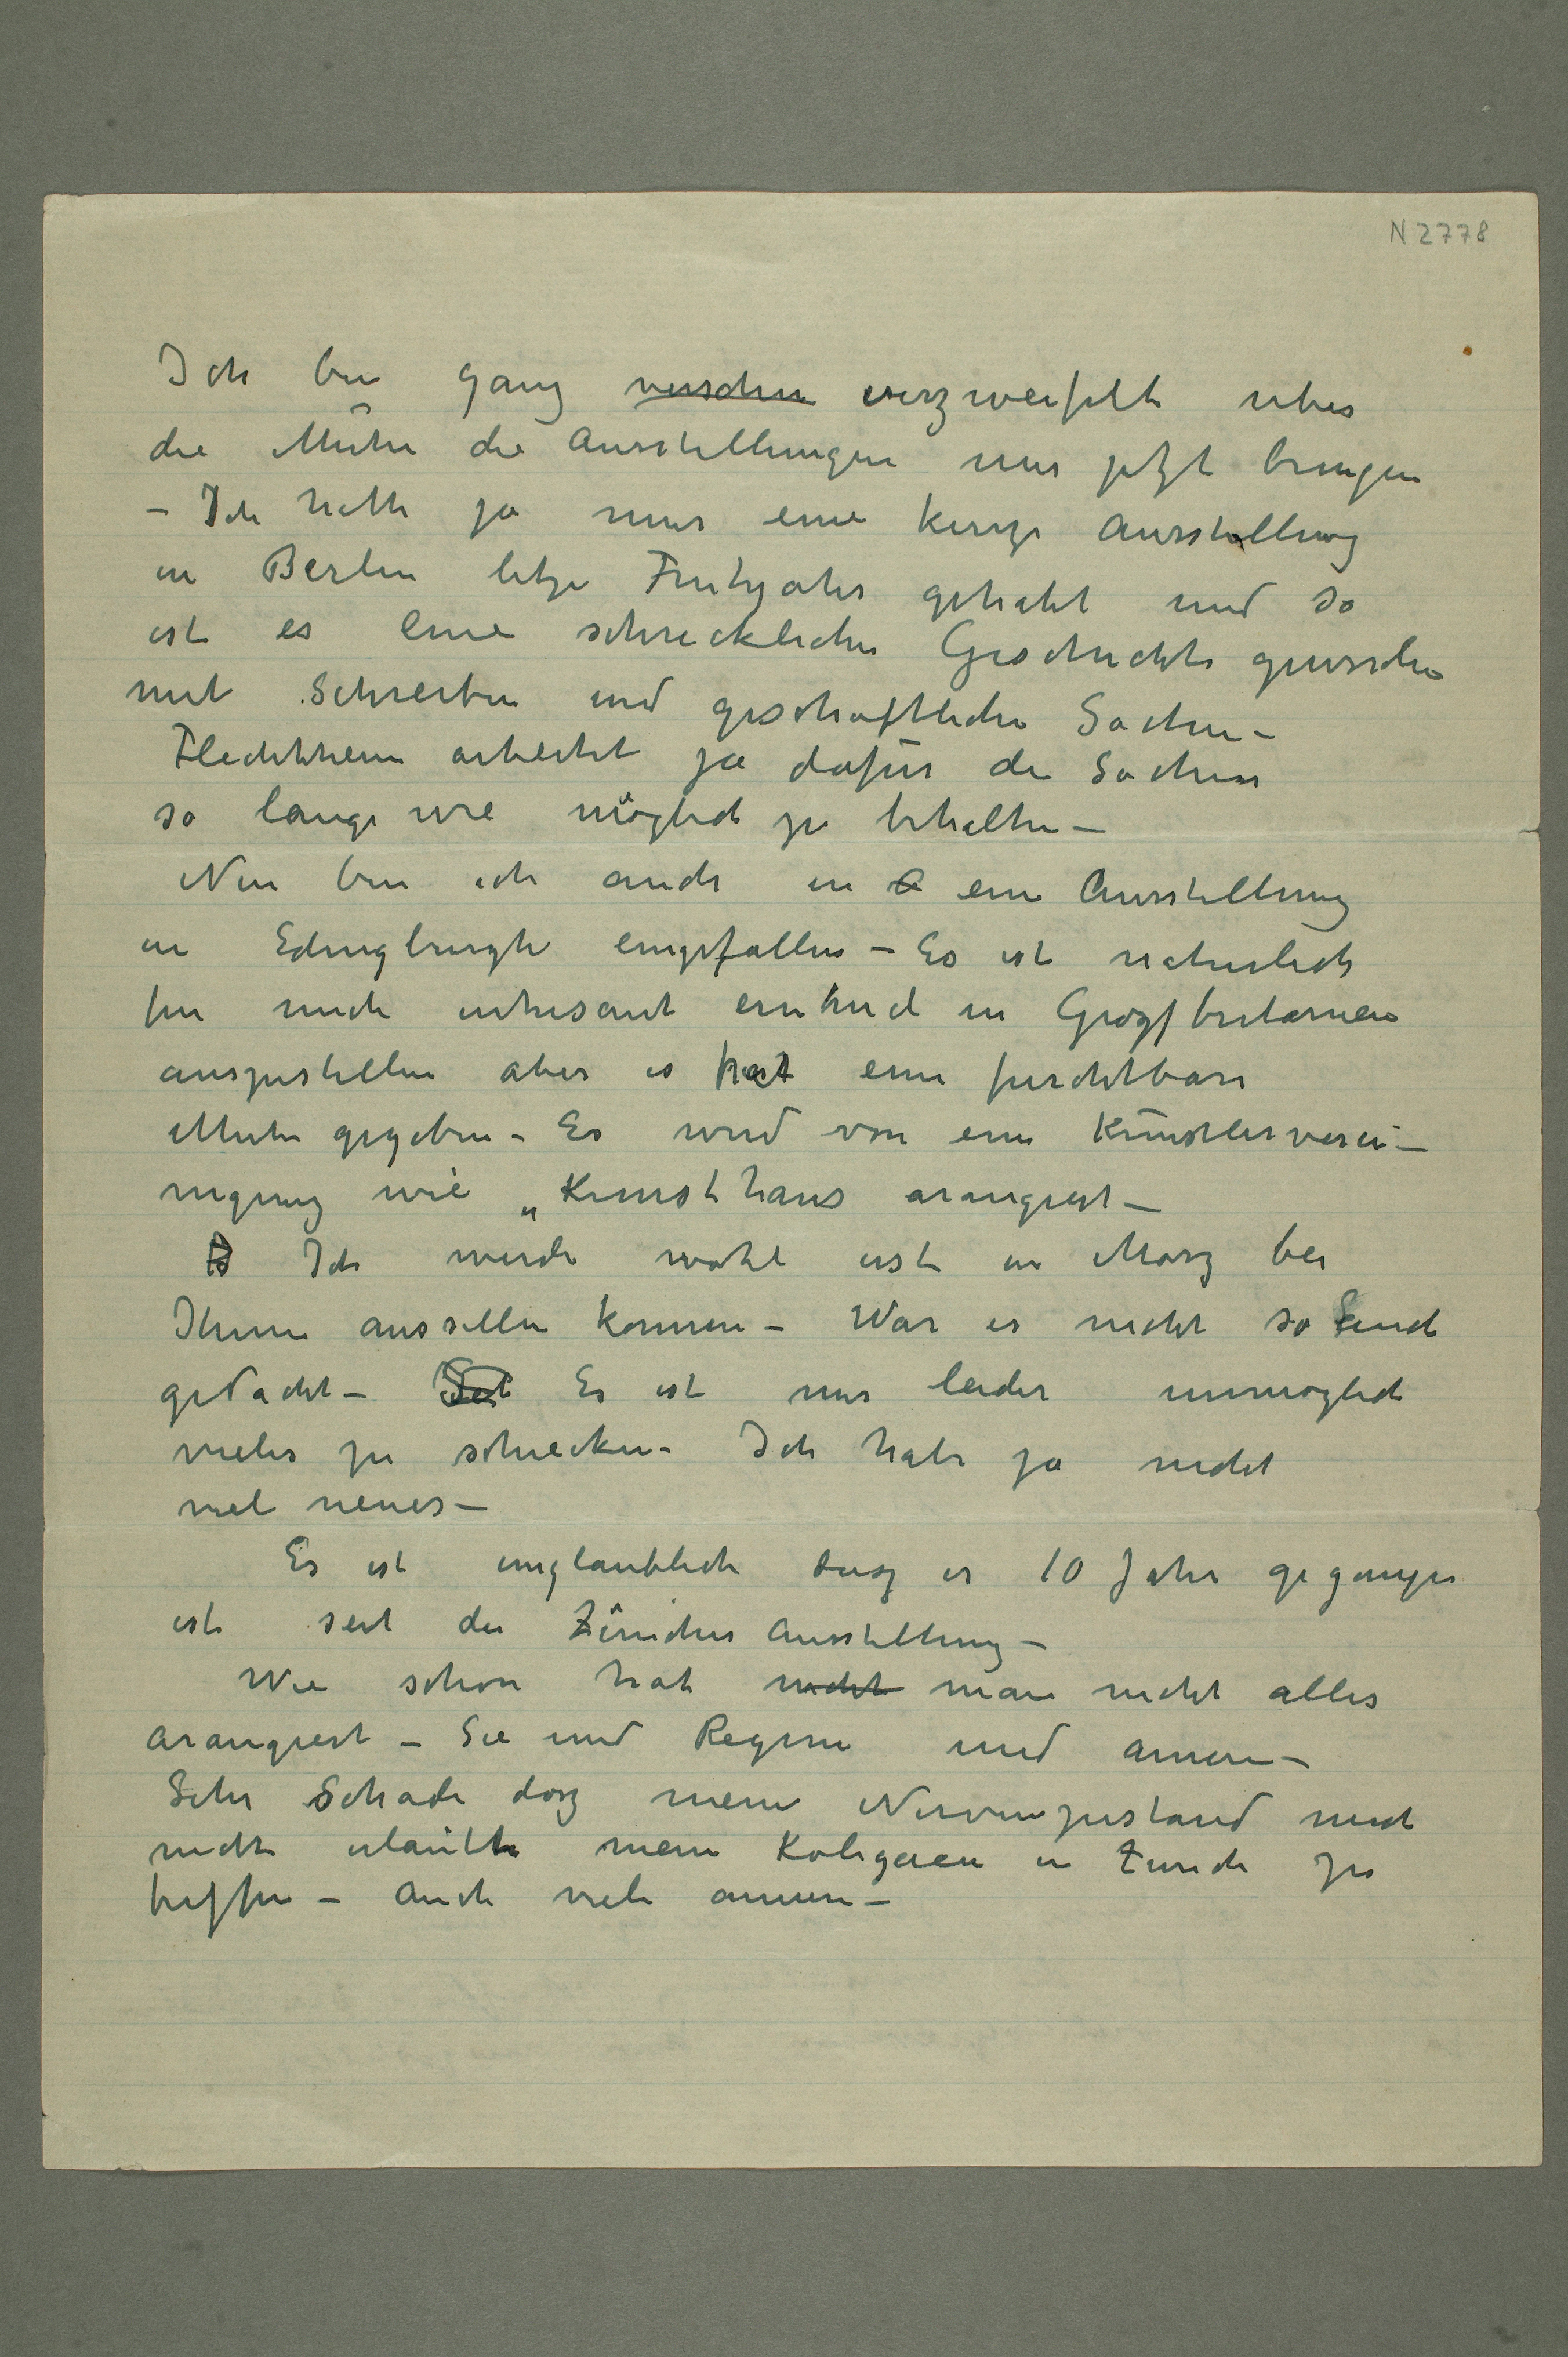 N 2778
Ich bin ganz verschu verzweifelt uber
die Mühe die Ausstellungen mir jetzt bringen
– Ich hatte ja nur eine kurze Ausstellung
in Berlin letze Fruhjahr gehabt und so
ist es eine schreckliche Geschichte geworden
mit Schreiben und geschaftliche Sachen –
Flechtheim arbeitet ja dafür die Sachen
so lange wie möglich zu behalten –
Nun bin ich auch in A eine Ausstellung
in Edingburgh eingefallen – Es ist naturlich
fur mich intresant einmal in Grozsbritanien
auszustellen aber es hat eine furchtbare
Muhe gegeben – Es wird von eine Künstlerverei–
nigung wie „Kunsthaus arangiert –
Ich werde wohl erst in Marz bei
Ihnen aussellen konnen – War es nicht so
gedacht – Es ist mir leider unmoglich
vieles zu schicken – Ich habe ja nicht
viel neues –
Es ist unglaublich dasz es 10 Jahre gegangen
ist seit die Züricher Ausstellung –
Wie schon hat nicht man nicht alles
arangiert – Sie und Regine und annere –
Sehr Schade dasz meine Nervenzustand mich
nicht erlaubte meine Kolegaen in Zurich zu
treffen – Auch viele annere –